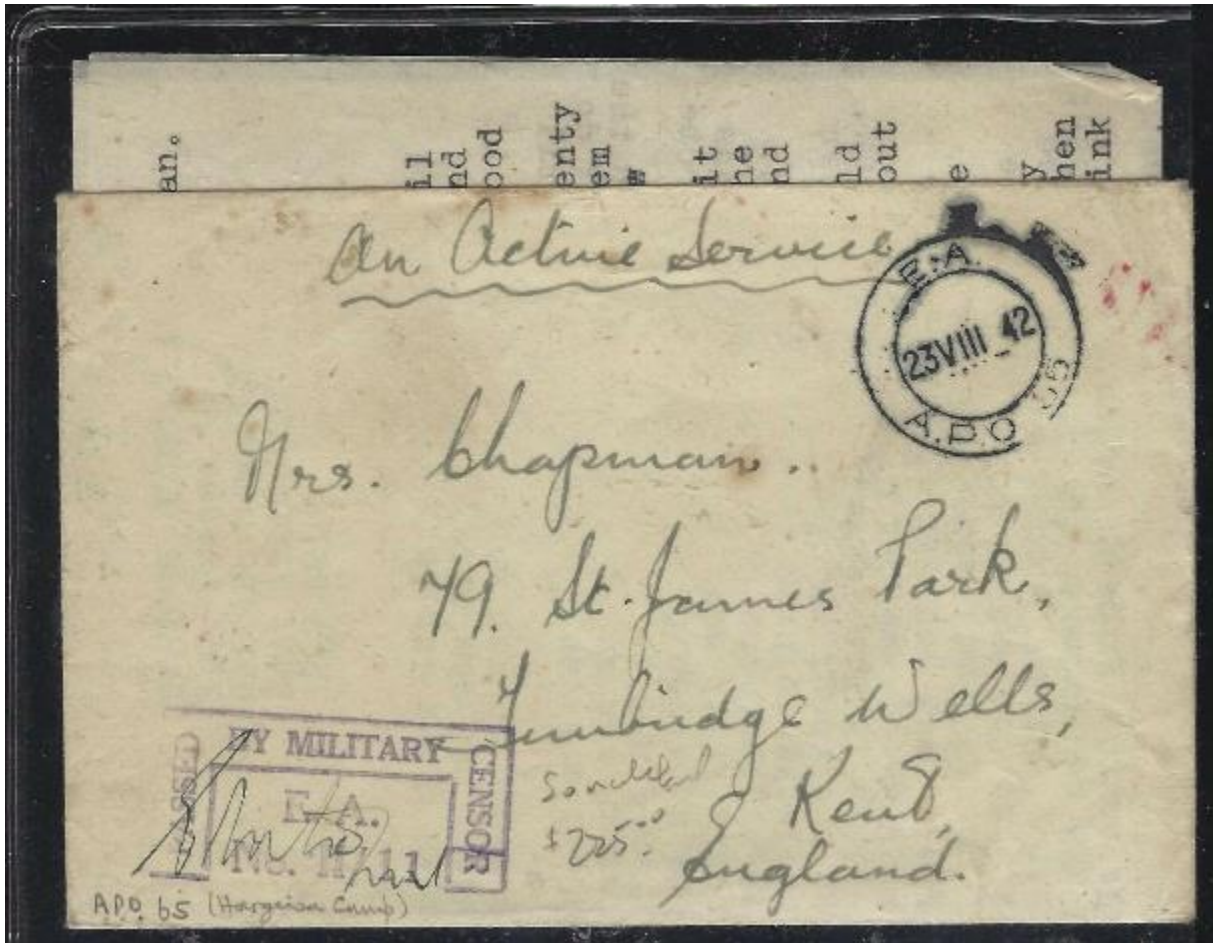 an.
il
nd
ood
enty
em
w
it
he
nd
ld
out
e
y
hen
ink
On Active Service
E.A.
23 VIII 42
A.P.O
Mrs. Chapman..
79. St. James Park,
Tunbridge Wells,
Kent,
England.
PASSED
BY MILITARY
CENSOR
E. A.
No. 11
$225.00
APO 65 (Hargeisa Camp)